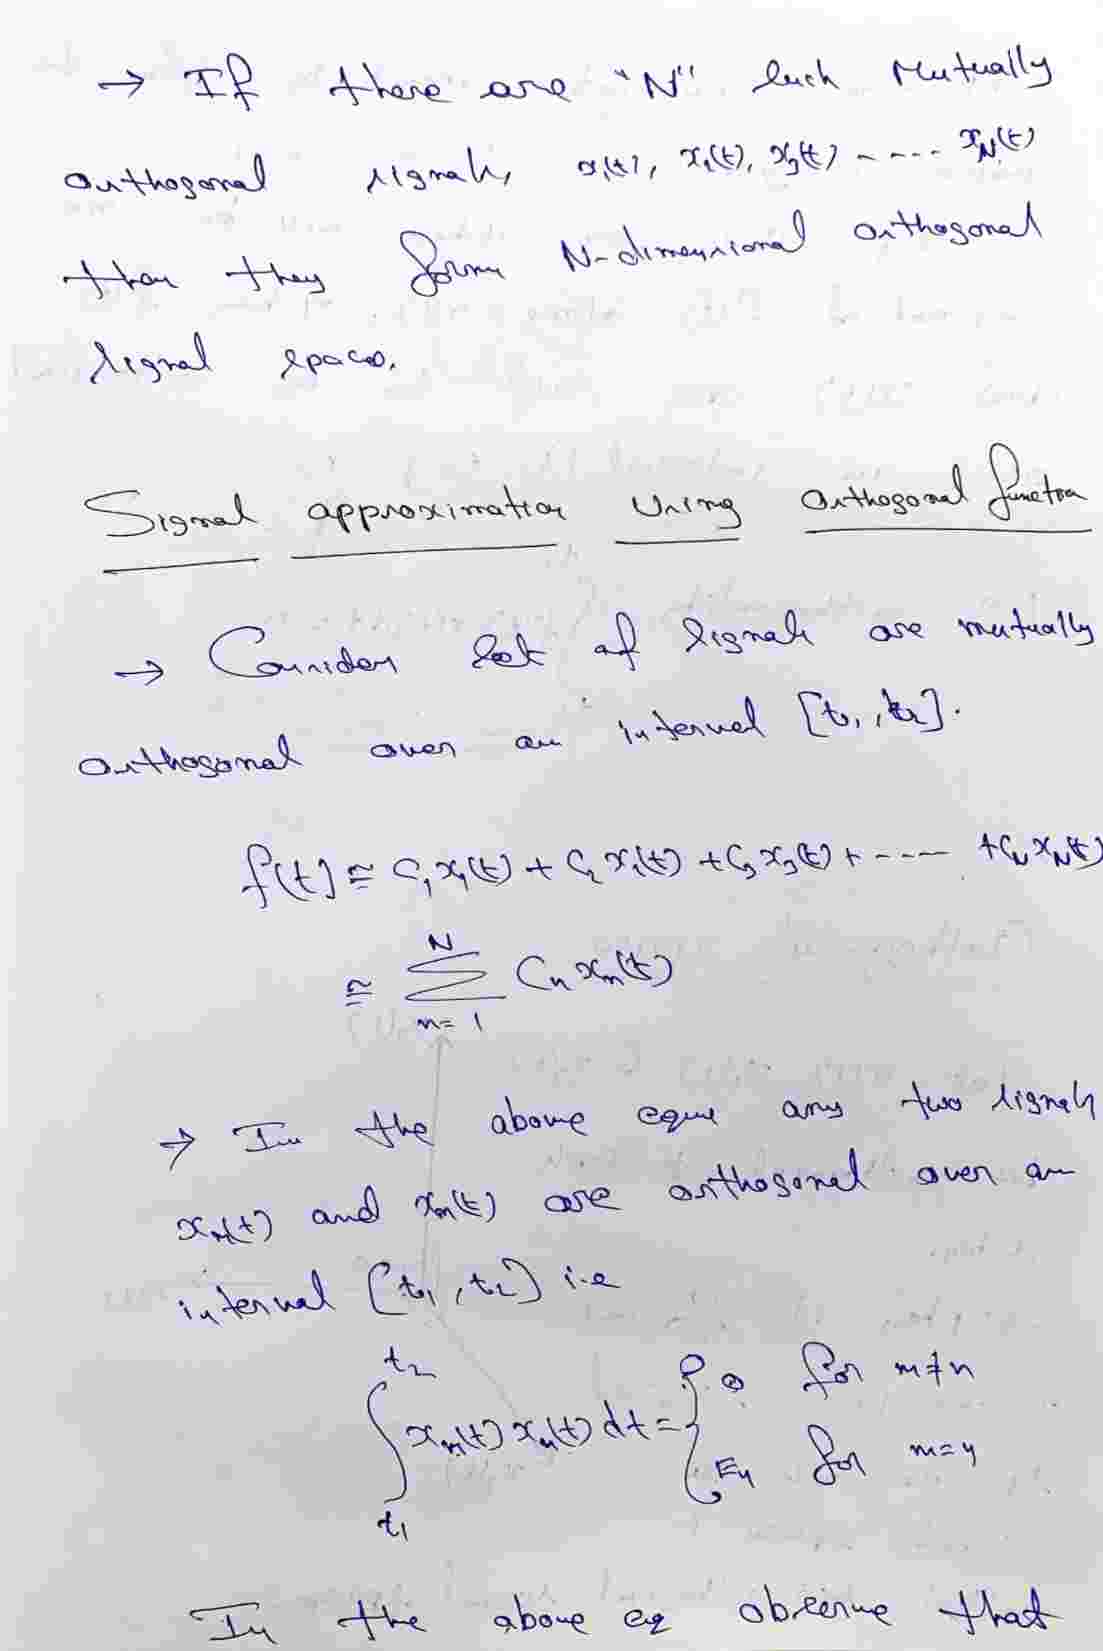 → If there are "N" such Mutually
orthogonal signals, x₁(t), x₂(t), x₃(t) ----- x_N(t)
then they form N-dimensional orthogonal
signal space.
Signal approximation Using Orthogonal function
→ Consider set of signals are mutually
orthogonal over an interval [t₁, t₂].
f(t) ≅ C₁x₁(t) + C₂x₂(t) + C₃x₃(t) + ----- + C_N x_N(t)
≅ ∑_{n=1}^{N} Cₙ xₙ(t)
→ In the above eque any two signals
xₙ(t) and xₘ(t) are orthogonal over an
interval [t₁, t₂] i.e
∫_{t₁}^{t₂} xₘ(t) xₙ(t) dt = { 0 for m≠n
Eₙ for m=n
In the above eq observe that